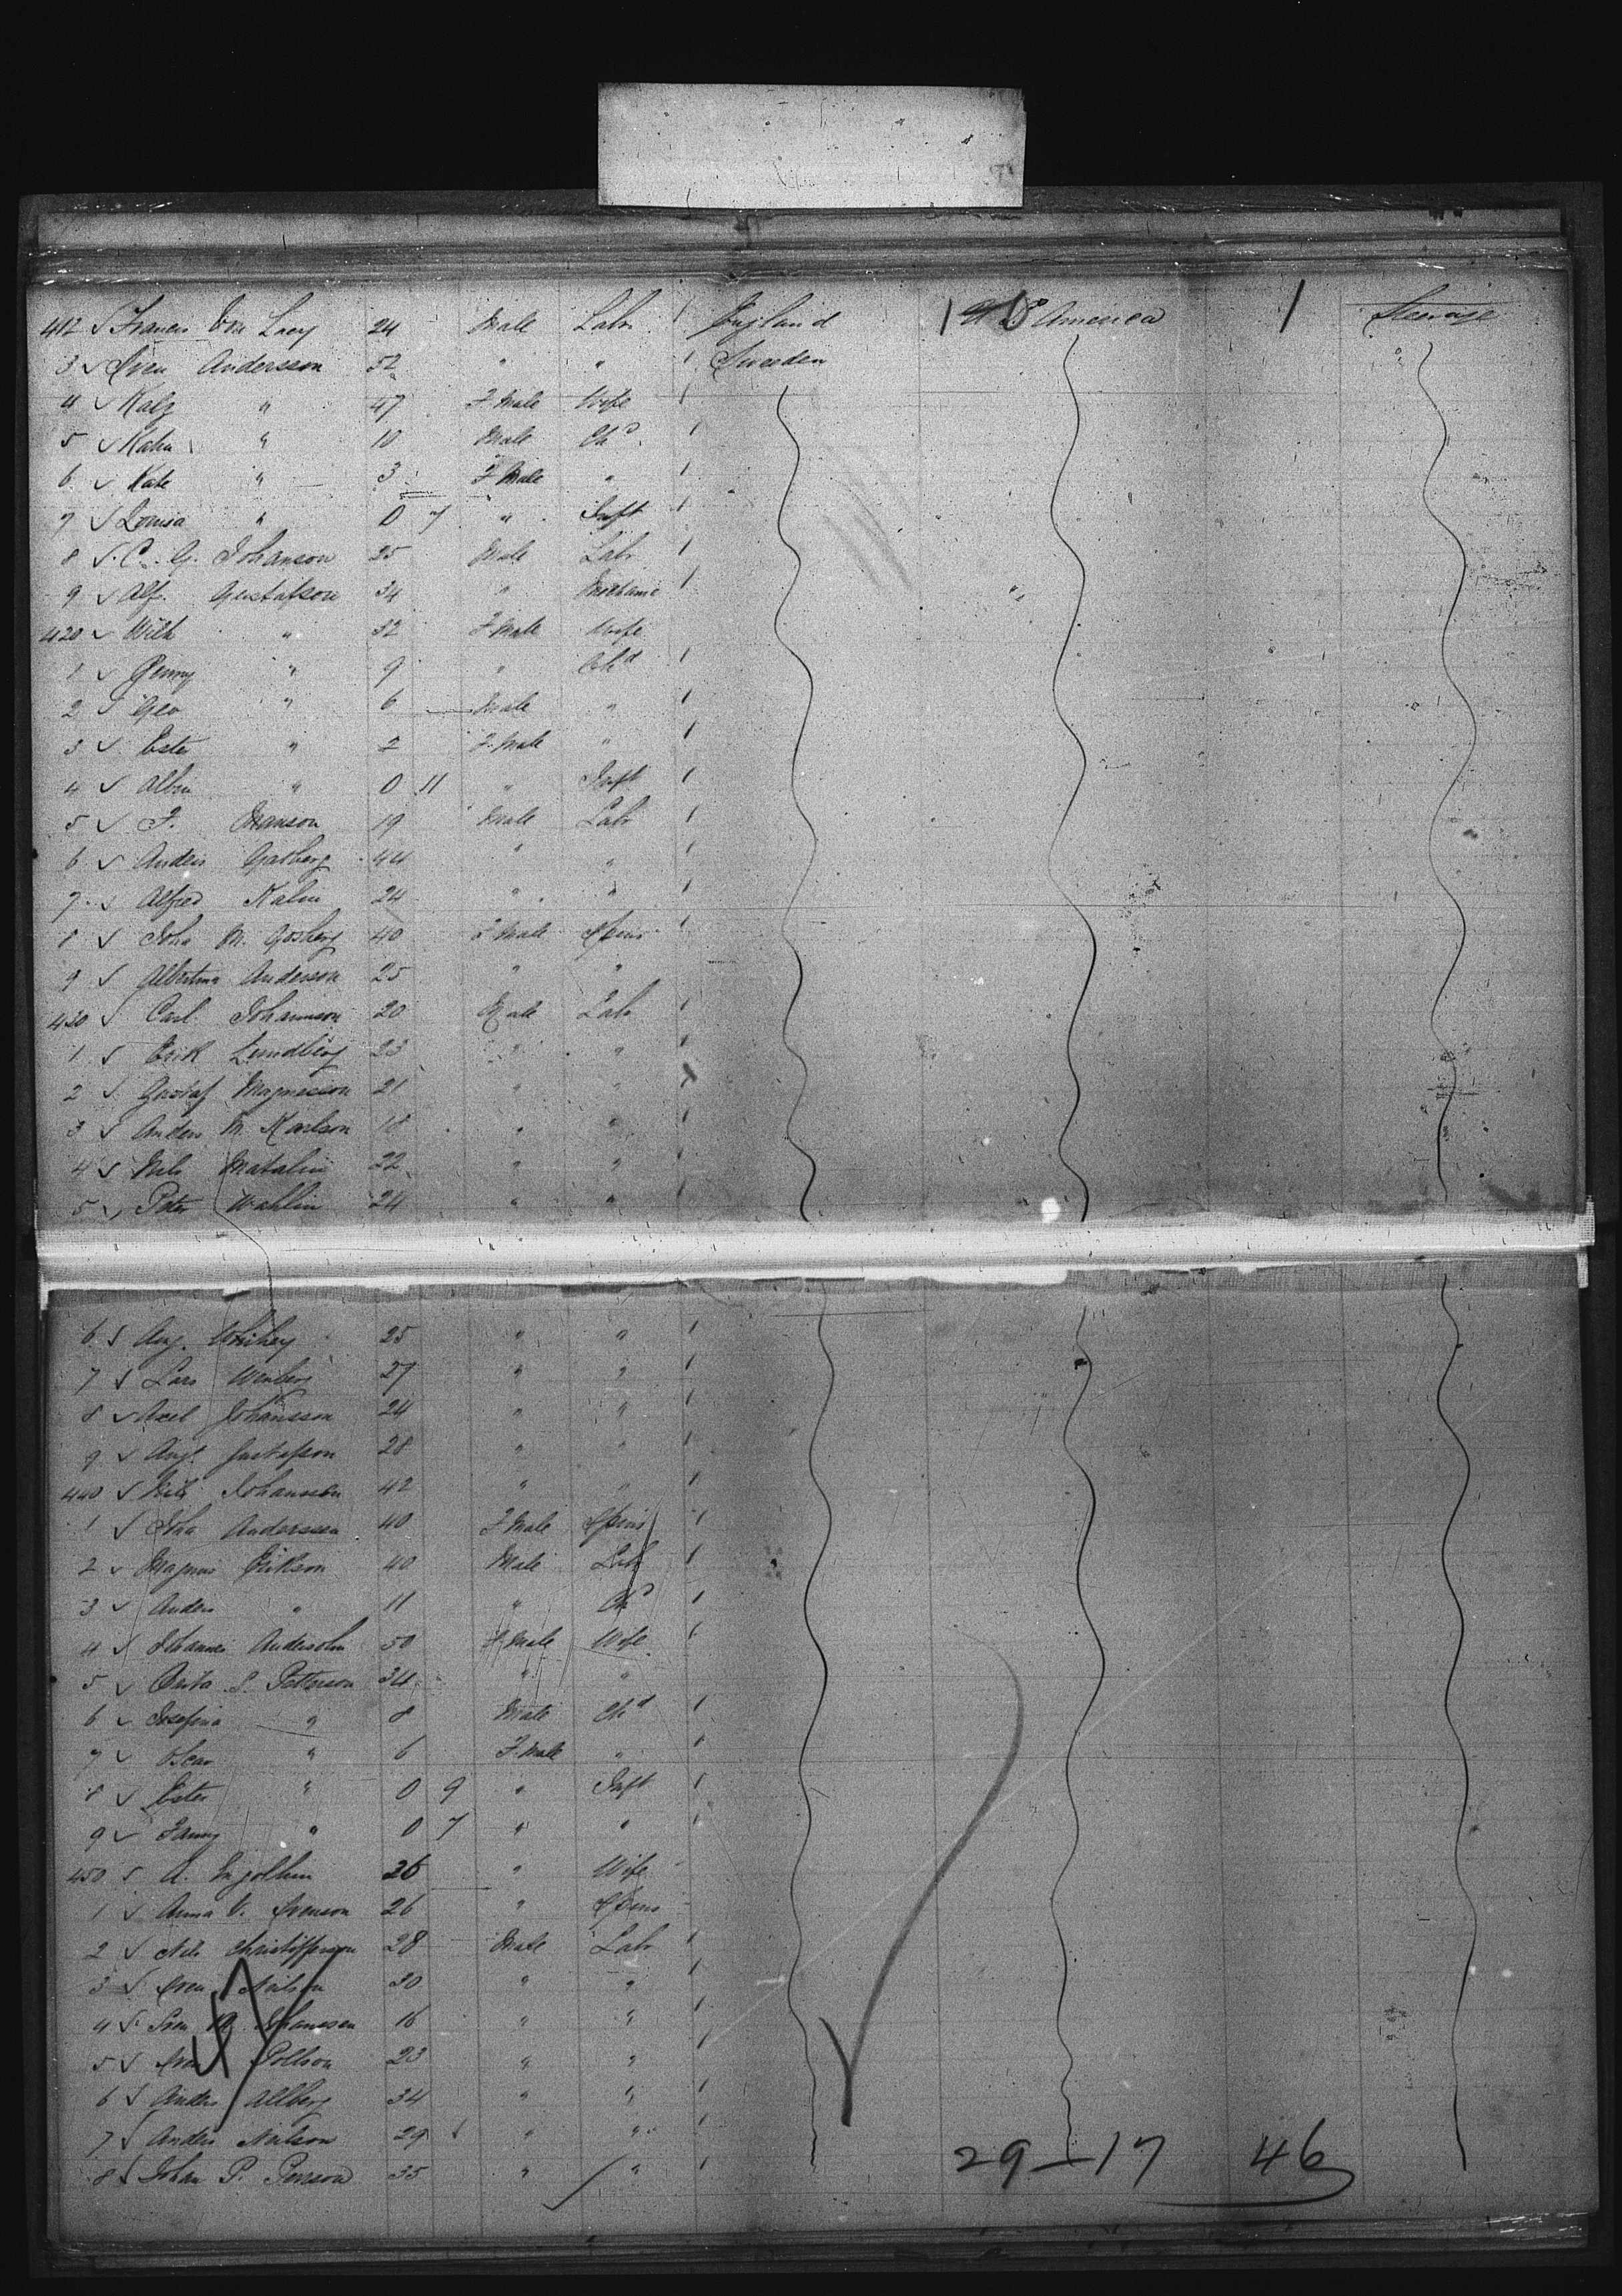 412 Francis Von Lacy 24 Male Labr 1 England 1 U S America 1 Steerage
3 Sven Andersson 52 " " 1 Sweden
4 " 47 F Male Wife 1
5 " 10 Male Chd 1
6 Kate " 3 F Male " 1
7 Louisa " 0 7 " Inft 1
8 C. G. Johanson 25 Male Labr 1
9 Alf. Gustafson 34 " Mechanic 1
420 Wilh " 32 F Male Wife
1 Jenny " 9 " Chd 1
2 Geo " 6 Male " 1
3 Ester " 2 F. Male " 1
4 Albin " 0 11 " Inft 1
5 F. Manson 19 Male Labr 1
6 Anders 44 " " 1
7 Alfred Kalin 24 " " 1
8 Joha M. 40 F Male Spins 1
9 Albertina Anderson 25 " "
430 Carl Johannson 20 Male Labr 1
1 Erik Lundberg 23 " " 1
2 Gustaf Magnusson 21 " " 1
3 Anders M. Karlson 18 " " 1
4 Nils 22 " " 1
5 Peter Wahlin 24 " " 1
6 Aug. 25 " " 1
7 Lars Wenberg 27 " " 1
8 Axel Johansson 24 " " 1
9 Aug. Gustafson 28 " " 1
440 Nils Johansson 42 " " 1
1 Joha Andersson 40 F Male Spins 1
2 Magnus Erikson 40 Male Labr 1
3 Anders " 11 " Chd 1
4 Johannes 50 F. Male Wife 1
5 S. Petterson 34 " "
6 Josefina " 8 Male Chd 1
7 Oscar " 6 F. Male " 1
8 Ester " 0 9 " Inft 1
9 Fanny " 0 7 " " 1
450 A. 26 " Wife
1 Anna C. Svenson 26 " Spins
2 Nils Christofferson 28 Male Labr 1
3 Sven Neilson 30 " " 1
4 Sven Johanssen 16 " " 1
5 23 " " 1
6 Anders Allberg 34 " " 1
7 Anders Neilson 29 " " 1
8 Johan P. Person 35 " " 1
29 – 17 46